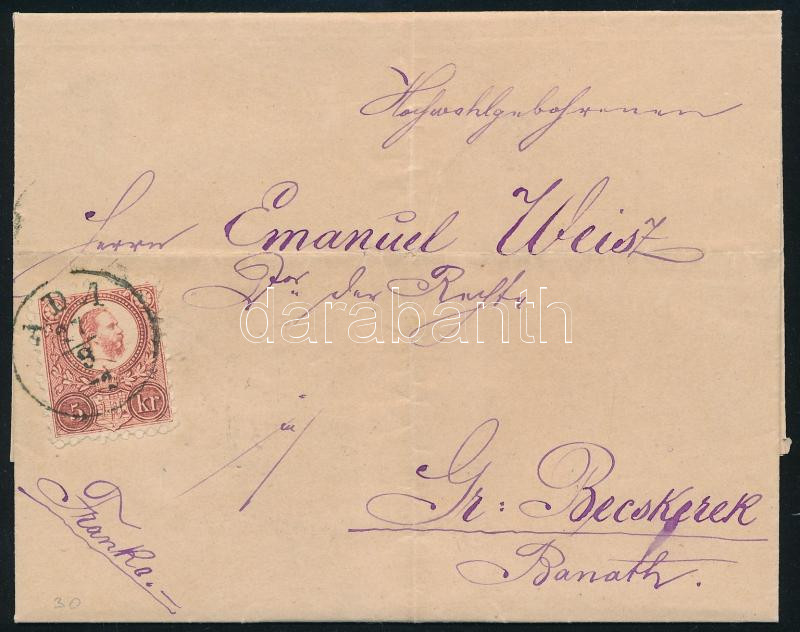 Hochwohlgebohrenen
Herrn Emanuel Weisz
Dor der Rechte
in
Gr: Becskerek
Banath.
Franko.
ADA
5 Kr
30
darabanth